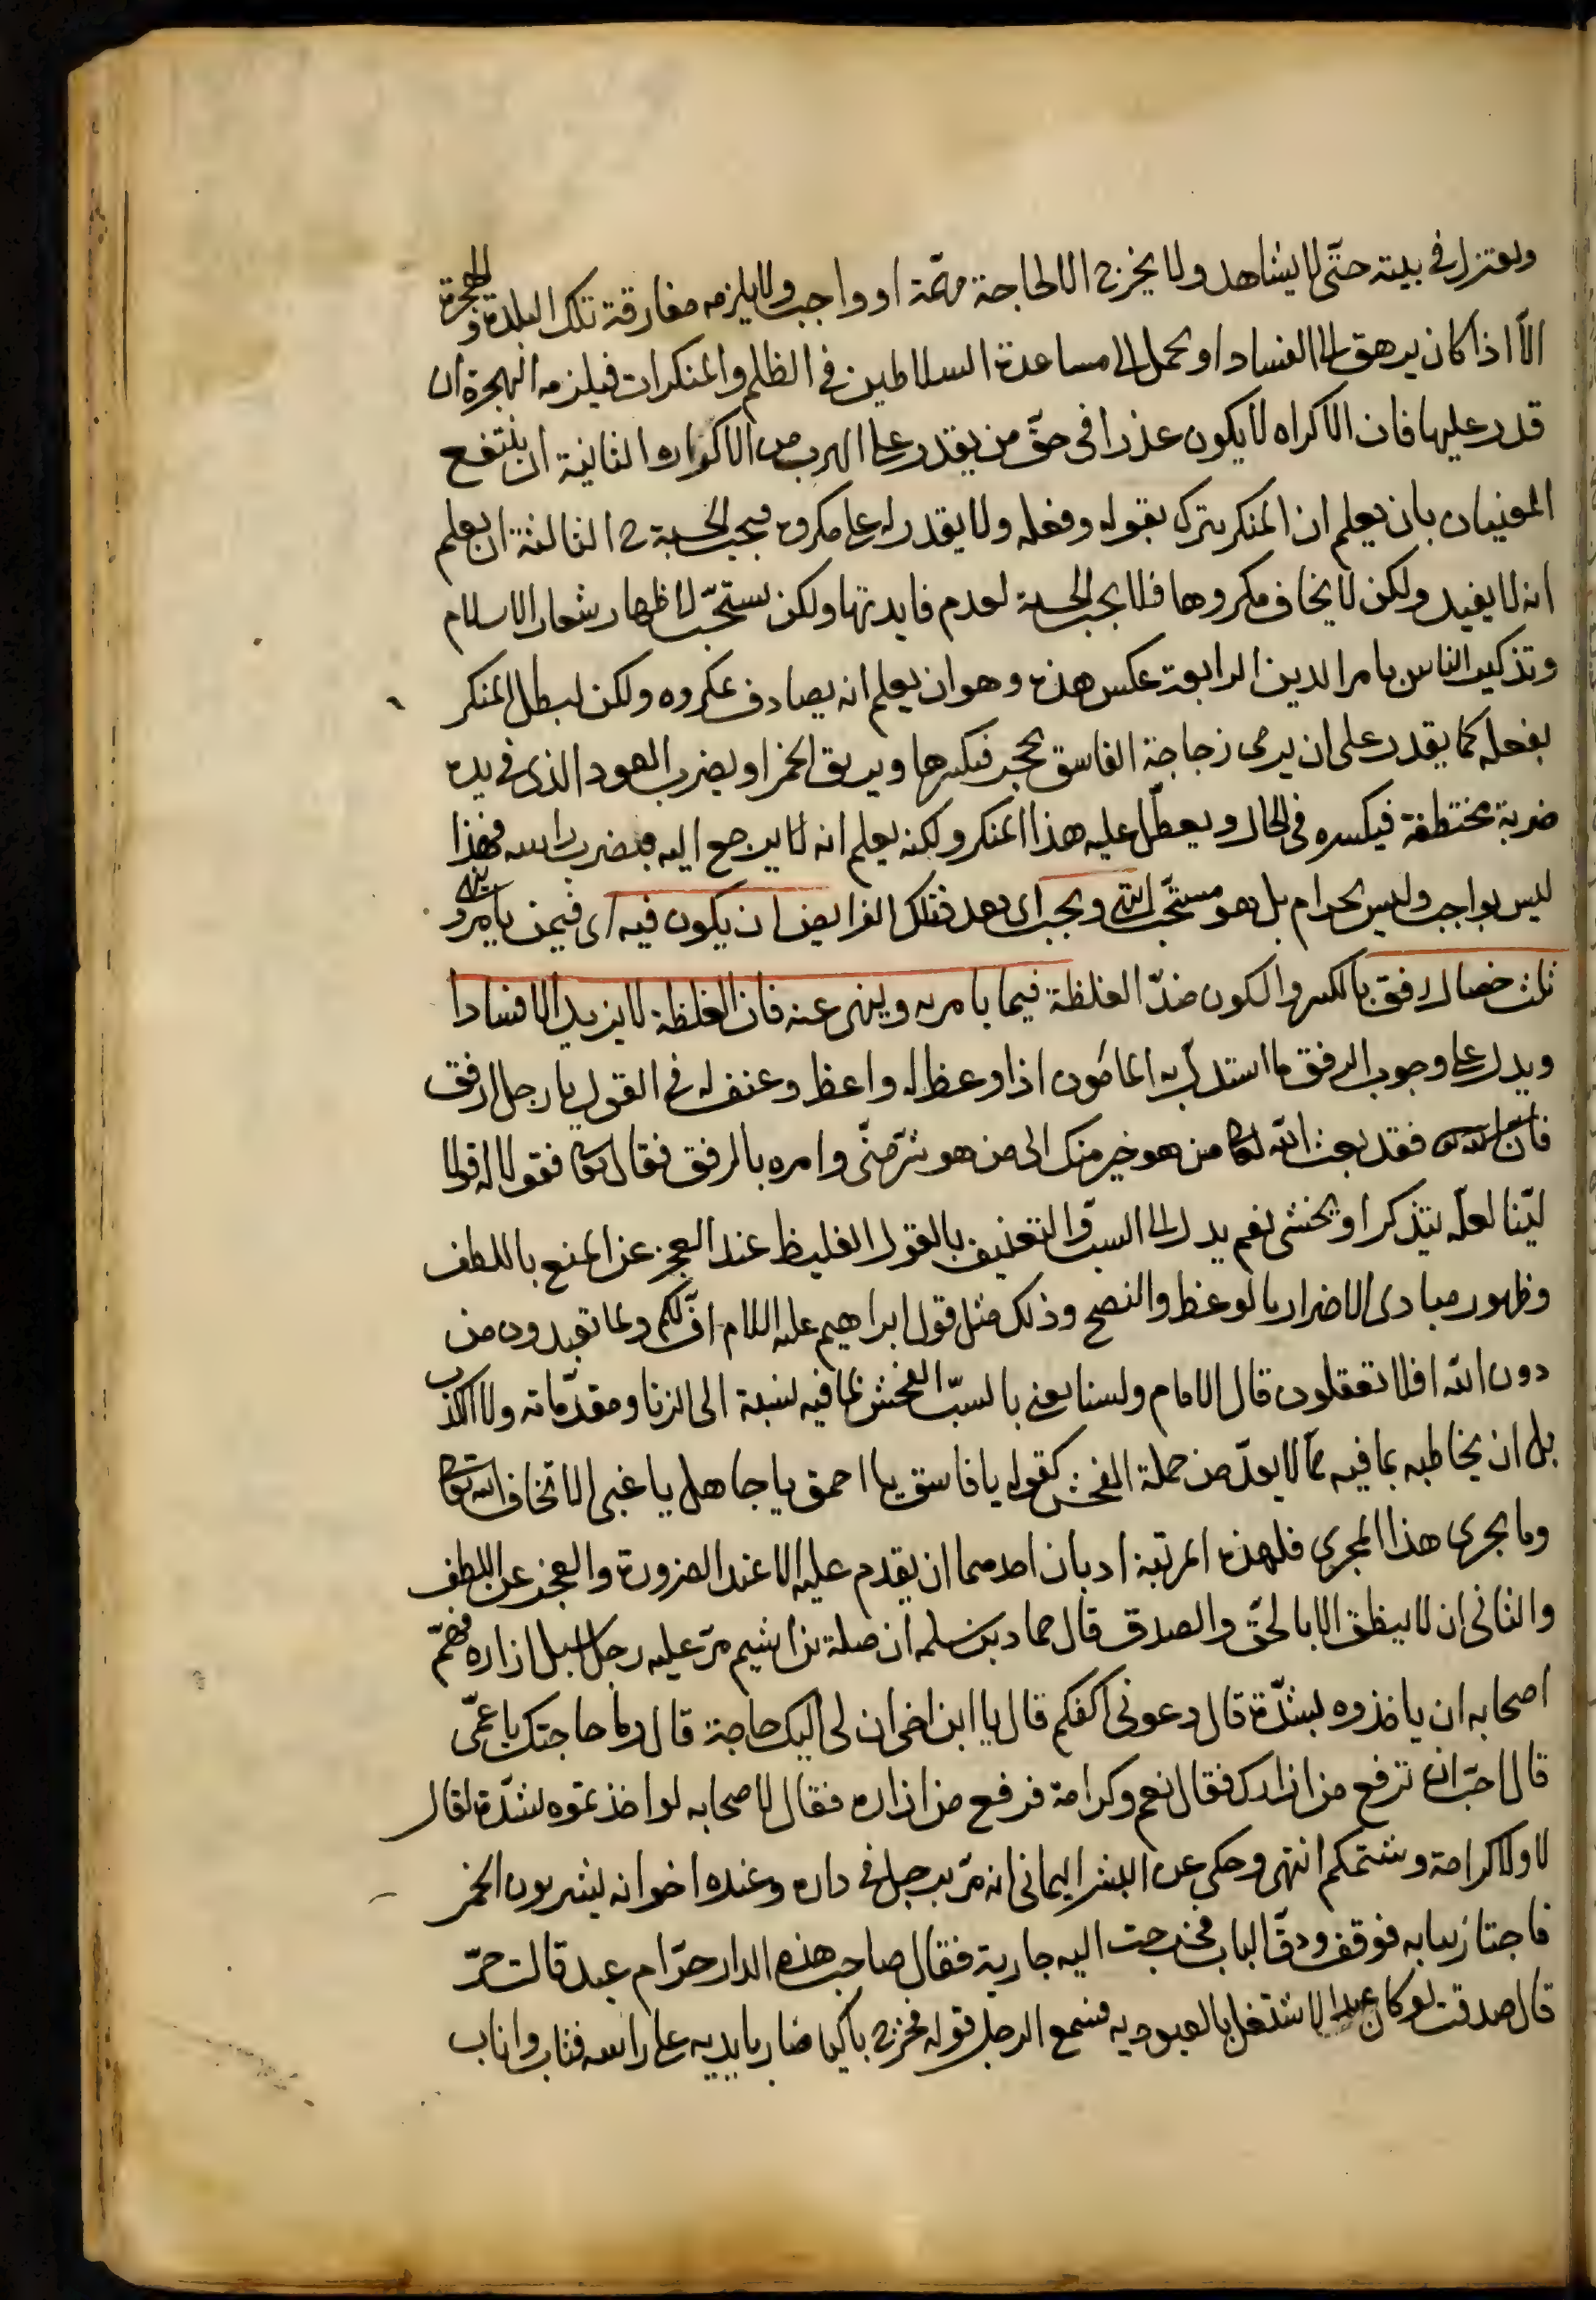 ويعتزل فى بيته حتّى لا يشاهد ولا يخرج الا لحاجة مهمّة او واجب ولا يلزمه مفارقة تلك البلدة والهجرة
الّا اذا كان يرهق الى الفساد او يحمل الى مساعدة السلاطين فى الظلم والمنكرات فيلزمه الهجرة ان
قدر عليها فان الاكراه لا يكون عذرا فى حقّ من يقدر على الهرب من الاكراه الثانية ان ينتفع
المعنيان بان يعلم ان المنكر يترك بقوله وفعله ولا يقدر له على مكروه فيجب الحسبة ح الثالثة ان يعلم
انه لا يفيد ولكن لا يخاف مكروها فلا يجب الحسبة لعدم فايدتها ولكن يستحّب لاظهار شعار الاسلام
وتذكير الناس بامر الدين الرابعة عكس هذه وهو ان يعلم انه يصادف بمكروه ولكن لبطل المنكر
بفعله كما يقدر على ان يرمى زجاجة الفاسق بحجر فيكسرها ويريق الخمر او يضرب العود الذى فى يده
ضربة مختطفة فيكسره فى الحال ويعطّل عليه هذا المنكر ولكنه يعلم انه لا يرجع اليه فيضرب راسه فهذا
ليس بواجب وليس بحرام بل هو مستحّب انتهى ويجب اى بعد فتلك الفرايض ان يكون فيه اى فيمن يامر وينهى
ثلث خصال رفق بالكسر والسكون ضدّ الغلظة فيما يامر به وينهى عنه فان الغلظة لا يزيد الا فسادا
ويدل على وجوب الرفق ما استدلّ به المامون اذا وعظ له واعظ وعنف له فى القول يا رجل ارفق
فان فقد بعث الله تعالى من هو خير منك الى من هو شرّ منّى وامره بالرفق فقال تعالى فقولا له قولا
ليّنا لعلّه يتذكر او يخشى نعم يدل الى السبّ والتعنيف بالقول الغليظ عند العجز عن المنع باللطف
وظهور مبادى الاضرار بالوعظ والنصح وذلك مثل قول ابراهيم عليه السلام افّ لكم ولما تعبدون من
دون الله افلا تعقلون قال الامام ولسنا يعنى بالسبّ الفحش بما فيه نسبة الى الزنا ومقدّماته ولا الكذب
بل ان يخاطبه بما فيه ممّا لا يعدّ من جملة الفحش كقوله يا فاسق يا احمق يا جاهل يا غبى الا تخاف الله تعالى
وما يجرى هذا المجرى فلهذه المرتبة ادبان احدهما ان يقدم عليه الا عند الضرورة والعجز عن اللطف
والثانى ان لا ينطق الا بالحّق والصدق قال حماد بن سلمه ان صلة بن اشيم مرّ عليه رجل اسبل ازاره فهمّ
اصحابه ان ياخذوه بشدّة قال دعونى اكفكم قال يا ابن اخى ان لى اليك حاجة قال وما حاجتك يا عمّى
قال احبّ ان ترفع من ازارك فقال نعم وكرامة فرفع من ازاره فقال لاصحابه لو اخذتموه بشدّة لقال
لا ولا كرامة وشتمكم انتهى وحكى عن البشر اليمانى انه مرّ برجل فى داره وعنده اخوانه يشربون الخمر
فاجتاز ببابه فوقف ودقّ الباب فخرجت اليه جارية فقال صاحب هذه الدار حرّ ام عبد قالت حرّ
قال صدقت لو كان عبدا لاشتغل بالعبوديه فسمع الرجل قوله فخرج باكيا ضاربا يديه على راسه فتاب واناب